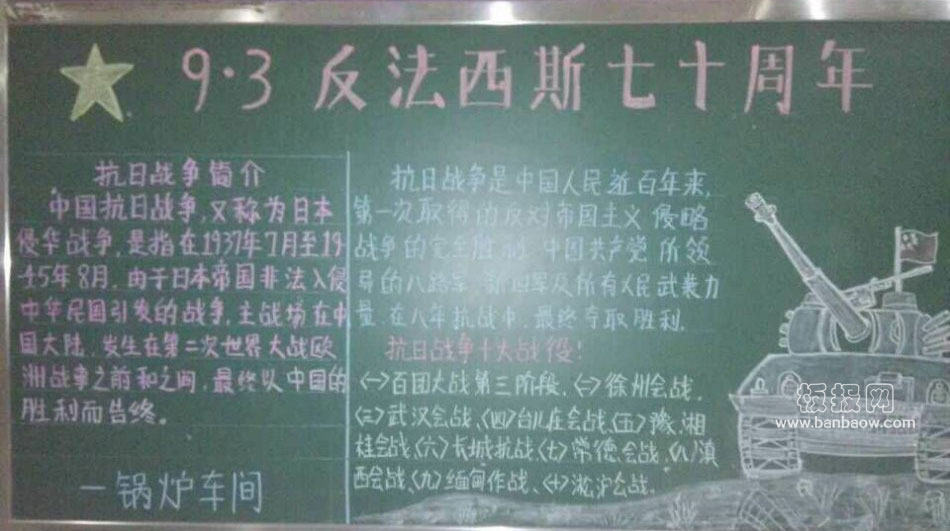 9·3 反法西斯七十周年
抗日战争简介
中国抗日战争,又称为日本
侵华战争,是指在1937年7月至19
45年8月,由于日本帝国非法入侵
中华民国引发的战争,主战场在中
国大陆,发生在第二次世界大战欧
洲战事之前和之间,最终以中国的
胜利而告终。
一锅炉车间
抗日战争是中国人民近百年来,
第一次取得的反对帝国主义侵略
战争的完全胜利,中国共产党所领
导的八路军,新四军及所有人民武装力
量,在八年抗战中,最终夺取胜利.
抗日战争十大战役!
(一)百团大战第三阶段.(二)徐州会战.
(三)武汉会战.(四)台儿庄会战.(五)豫.湘
桂会战.(六)长城抗战.(七)常德会战.(八)滇
西会战.(九)缅甸作战.(十)淞沪会战.
板报网
www.banbaow.com